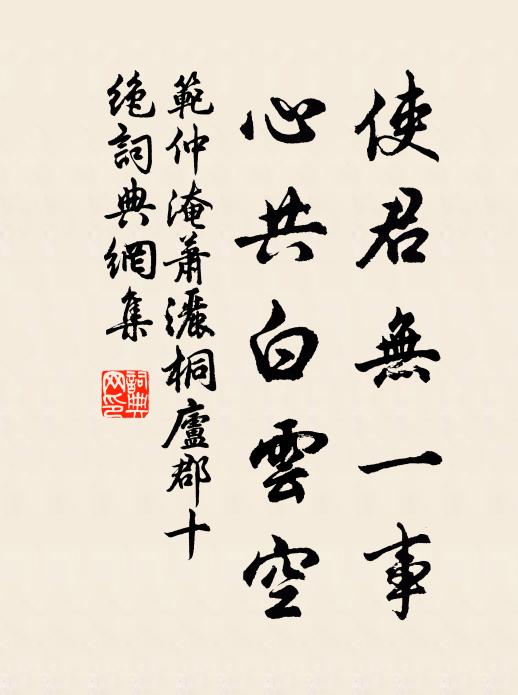 使君無一事
心共白雲空
範仲淹蕭灑桐廬郡十
絕詞典網集
詞典
网印